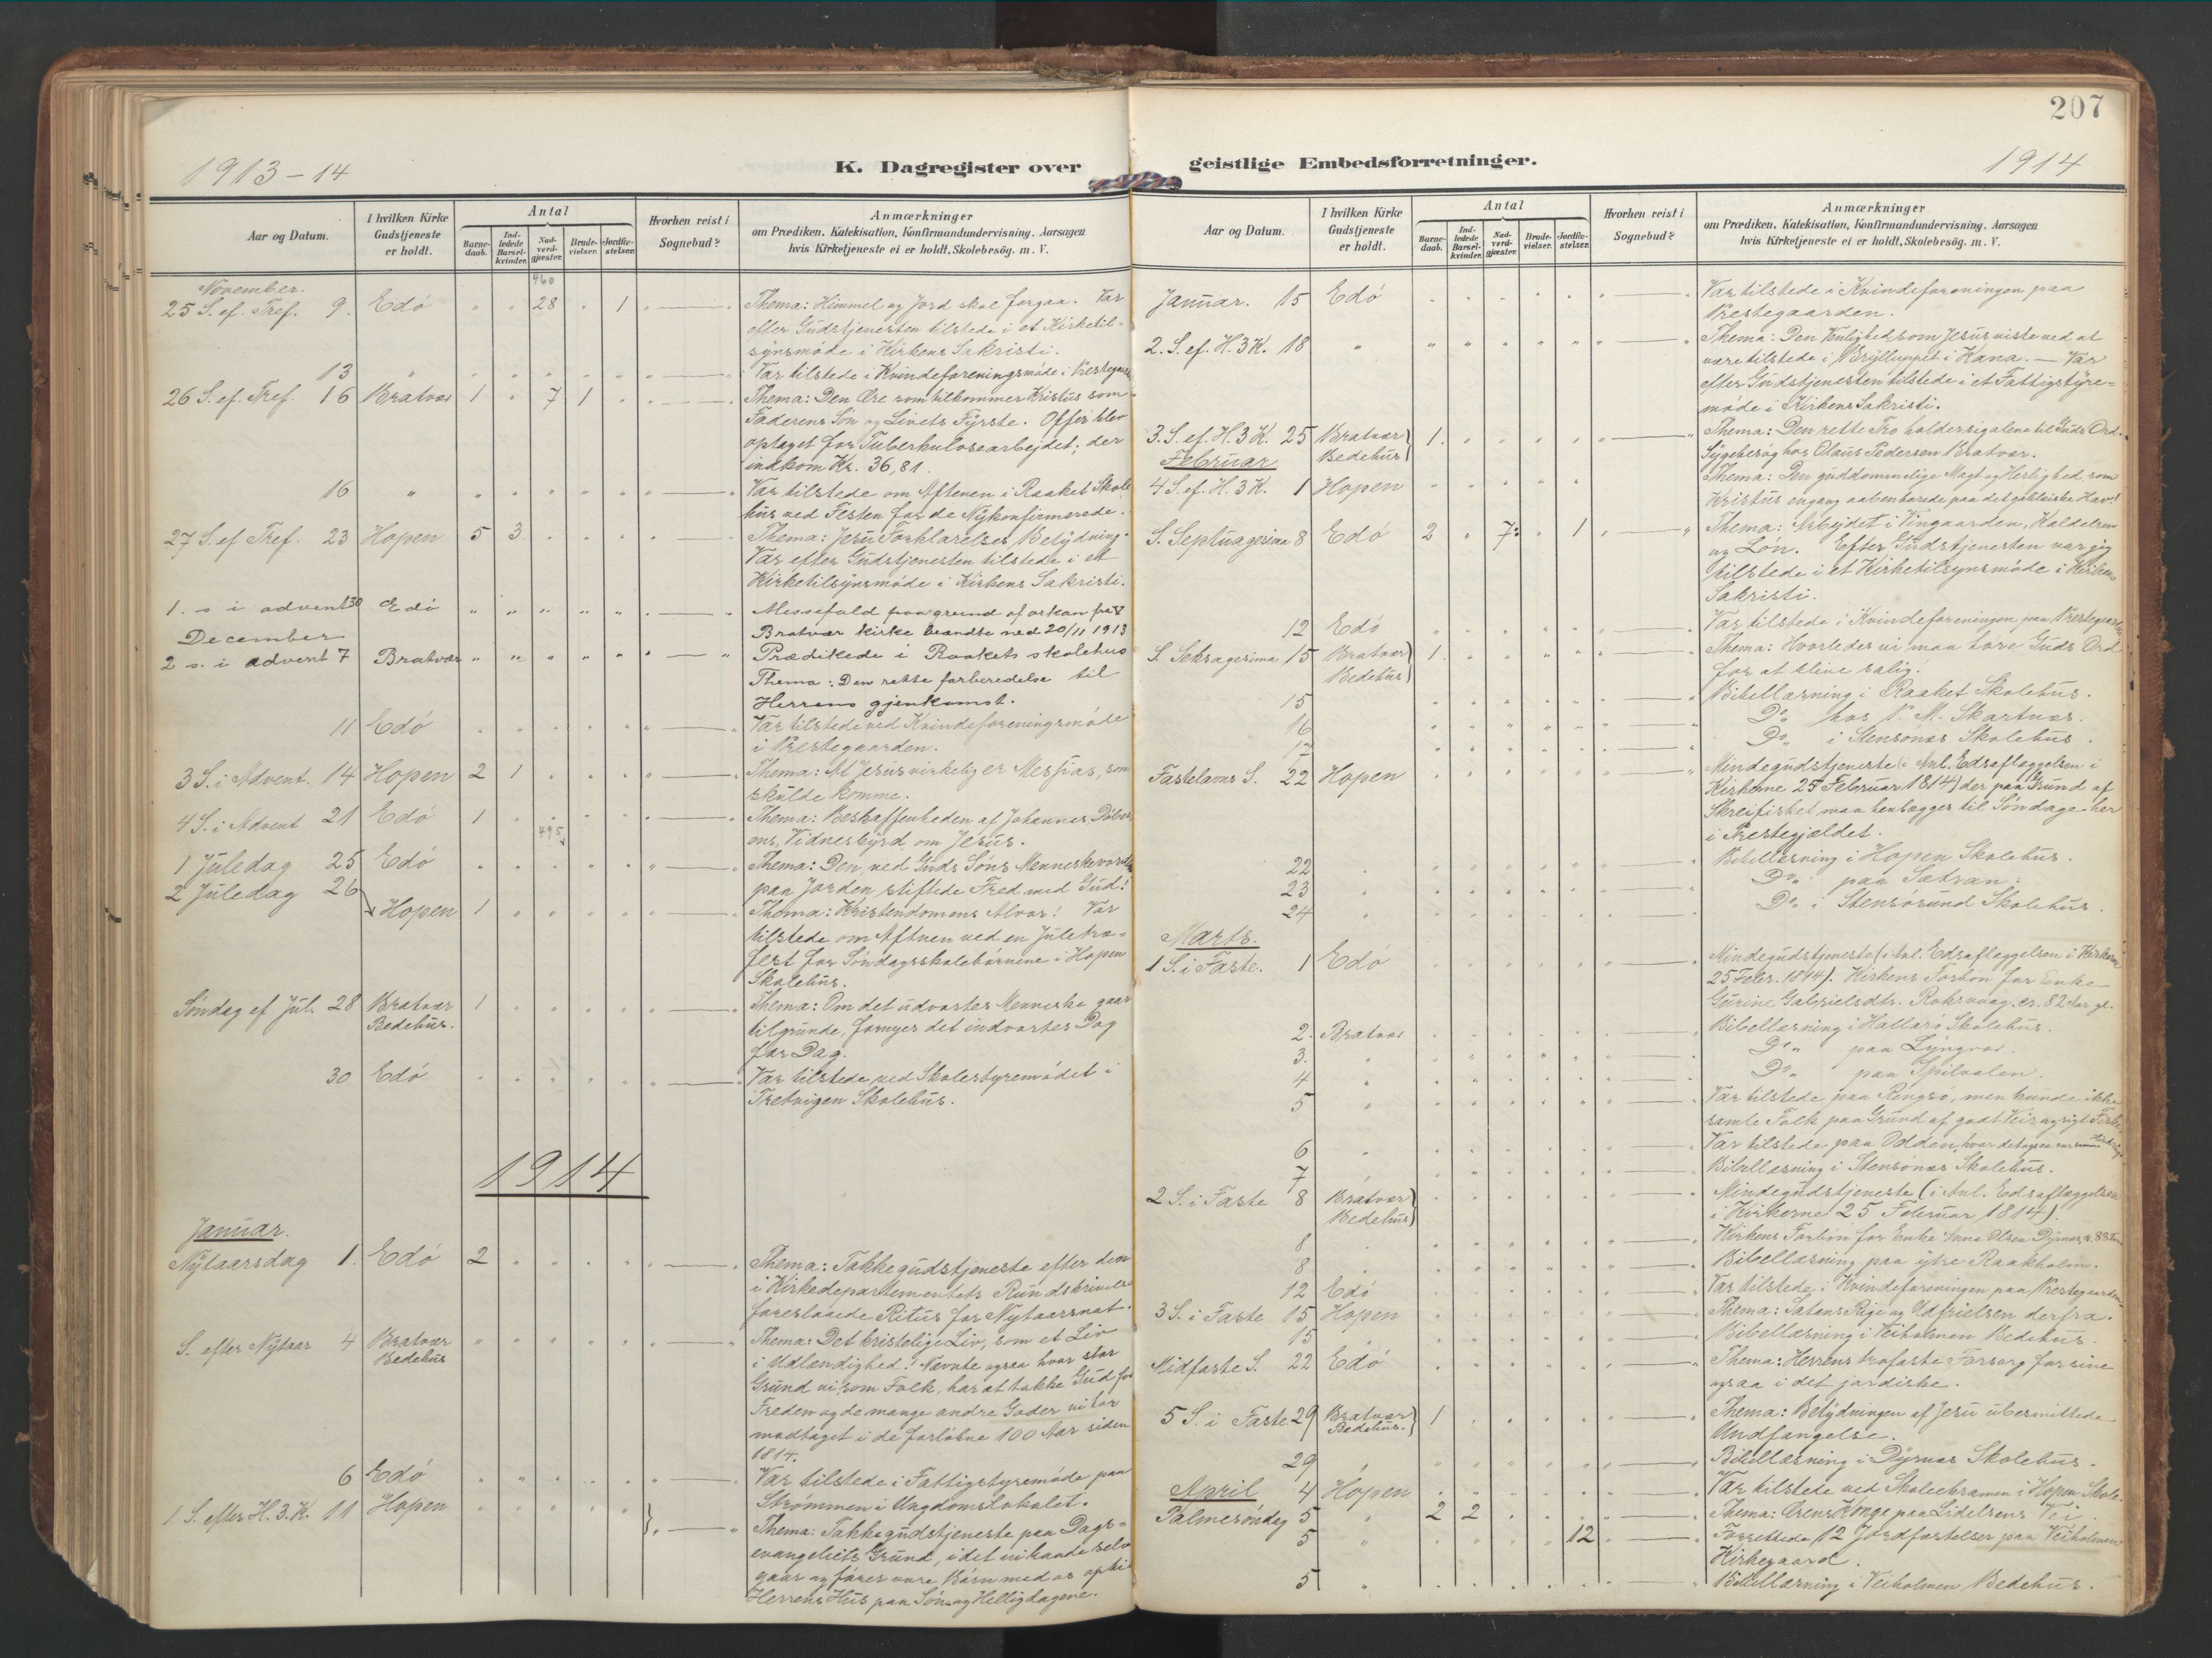 207
1913-14
K. Dagregister over
geistlige Embedsforretninger.
1914
Aar og Datum.
I hvilken Kirke Gudstjeneste er holdt.
Antal
Barne-daab.
Ind-ledede Barsel-kvinder.
Nad-verd-gjæster.
Brude-vielser.
Jordfæ-stelser.
Hvorhen reist i Sognebud?
Anmærkninger
om Prædiken, Katekisation, Konfirmandundervisning. Aarsagen
hvis Kirketjeneste ei er holdt, Skolebesög. m. V.
November.
460
25 S. ef. Tref. 9. Edö " " 28 " 1 " Thema: Himmel og Jord skal forgaa. Var
efter Gudstjenesten tilstede i et Kirketil-
synsmöde i Kirkens Sakristi.
13 " Var tilstede i Kvindeforeningsmöde i Prestegaarden
26 S. ef. Tref. 16 Bratvær 1 " 7 1 " Thema: Den Ære som tilkommer Kristus som
Faderens Sön og Livets Fyrste. Offer blev
optaget for Tuberkulosearbejdet; der
indkom Kr. 36,81.
16 " Var tilstede om Aftenen i Raaket Skole
hus ved Festen for de Nykonfirmerede.
27 S. ef Tref. 23 Hopen 5 3 " Thema: Jesu Forklarelses Betydning.
Var efter Gudstjenesten tilstede i et
Kirketilsynsmöde i Kirkens Sakristi.
1. s i advent 30 Edö " Messefald paa grund af orkan fra V
December
Bratvær kirke brændte ned 20/11 1913
2 s. i advent 7 Bratvær " Prædikede i Raakets skolehus
Thema: Den rette forberedelse til
Herrens gjenkomst.
11 Edö " Var tilstede ved Kvindeforeningsmöde
i Prestegaarden.
3 S. i Advent. 14 Hopen 2 1 " Thema: At Jesus virkelig er Messias, som
skulde komme.
4 S. i Advent 21 Edö 1 " Thema: Beskaffenheden af Johannes Döber
ens Vidnesbyrd om Jesus.
495
1 Juledag 25 Edö " Thema: Den ved Guds Söns Menneskevorden
paa Jorden stiftede Fred med Gud!
2 Juledag 26
Hopen 1 " Thema: Kristendomens Alvor! Var
tilstede om Aftnen ved en Juletræ-
fest for Söndagsskolebörnene i Hopen
Skolehus.
Söndag ef Jul. 28 Bratvær Bedehus. 1 " Thema: Om det udvortes Menneske gaar
tilgrunde, fornyes det indvortes Dag
for Dag.
30 Edö " Var tilstede ved Skolestyremödet i
Tretvigen Skolehus.
1914
Januar.
Nytaarsdag 1. Edö 2 " Thema: Takkegudstjeneste efter den
i Kirkedepartementets Rundskrivelse
foreslaaede Ritus for Nytaarsnat.
S. efter Nytaar 4 Bratvær Bedehus " Thema: Det kristelige Liv, som et Liv
i Udlændighed! Nevnte ogsaa hvor stor
Grund vi, som Folk, har at takke Gud for
Freden og de mange andre Goder vi har
modtaget i de forløbne 100 Aar siden
1814.
6 Edö " Var tilstede i Fattigstyremöde paa
Strømmen i Ungdomslokalet.
1 S. efter H. 3. K. 11 Hopen " Thema: Takkegudstjeneste paa Dags-
evangeliets Grund, idet vi baade selv
gaar og förer vore Börn med os op til
Herrens Hus paa Sön- og Helligdagene.
Aar og Datum.
I hvilken Kirke Gudstjeneste er holdt.
Antal
Barne-daab.
Ind-ledede Barsel-kvinder.
Nad-verd-gjæster.
Brude-vielser.
Jordfæ-stelser.
Hvorhen reist i Sognebud?
Anmærkninger
om Prædiken, Katekisation, Konfirmandundervisning. Aarsagen
hvis Kirketjeneste ei er holdt, Skolebesög. m. V.
Januar. 15 Edö " Var tilstede i Kvindeforeningen paa
Prestegaarden.
2. S. ef. H. 3 K. 18 " Thema: Den Venlighed, som Jesus viste ved at
være tilstede i Brylluppet i Kana. — Var
efter Gudstjenesten tilstede i et Fattigstyre-
möde i Kirkens Sakristi.
3. S. ef. H. 3 K. 25 Bratvær Bedehus 1. " Thema: Den rette Tro holder sig alene til Guds Ord.
Sygebesög hos Olaus Pedersen Bratvær.
Februar
4 S. ef. H. 3 K. 1 Hopen " Thema: Den guddommelige Magt og Herlighed som
Kristus engang aabenbarede paa det galilæiske Hav!
S. Septuagesima 8 Edö 2 " 7 " 1 " Thema: Arbejdet i Vingaarden, Kaldelsen
og Lön. Efter Gudstjenesten var jeg
tilstede i et Kirketilsynsmöde i Kirkens
Sakristi.
12 Edö " Var tilstede i Kvindeforeningen paa Prestegaarden
S. Seksagesima 15 Bratvær Bedehus 1. " Thema: Hvorledes vi maa höre Guds Ord
for at blive salig.
15 " Bibellæsning i Raaket Skolehus.
16 " Do " hos P. M. Skartnæs.
17 " Do " i Stensönæs Skolehus.
Fastelavns S. 22 Hopen " Mindegudstjeneste (i Anl. Edsaflæggelsen i
Kirkerne 25 Februar 1814) der paa Grund af
Skreifisket maa henlægges til Söndage her
i Prestegjældet.
22 " Bibellæsning i Hopen Skolehus.
23 " Do " paa Sætran.
24 " Do " i Stensösund Skolehus.
Marts.
1 S. i Faste. 1 Edö " Mindegudstjeneste (i Anl. Edsaflæggelsen i Kirkerne
25 Febr. 1814). Kirkens Forbön for Enke
Gurine Gabrielsdtr. Roksvaag, ca. 82 Aar gl.
2. Bratvær " Bibellæsning i Hallarö Skolehus.
3. " Do " paa Lyngvær.
4 " Do " paa Spilvalen.
5 " Var tilstede paa Ringsö, men kunde ikke
samle Folk paa Grund af godt Veir og rigt Fiske
6 " Var tilstede paa Odden, hvor det ogsaa var
7 " Bibellæsning i Stensönæs Skolehus.
2 S. i Faste 8 Bratvær Bedehus " Mindegudstjeneste (i Anl. Edsaflæggelsen
i Kirkerne 25 Februar 1814).
8 " Kirkens Forbön for Enke Anna Olsen Dyrnæs, 88 Aar
8 " Bibellæsning paa ytre Raakholm.
12 Edö " Var tilstede i Kvindeforeningen paa Prestegaarden
3 S. i Faste 15 Hopen " Thema: Satans Rige og Udfrielsen derfra.
15 " Bibellæsning i Veiholmen Bedehus.
Midfaste S. 22 Edö " Thema: Herrens trofaste Forsorg for sine
ogsaa i det jordiske.
5 S. i Faste 29 Bratvær Bedehus. 1 " Thema: Betydningen af Jesu ubesmittede
Undfangelse.
29 " Bibellæsning i Dyrnæs Skolehus.
April 4 Hopen " Var tilstede ved Skoleeksamen i Hopen Skole.
Palmesöndag 5 " 2 2 " Thema: Ærens Konge paa Lidelsens Vei.
5 " 12 " Forrettede 12 Jordfæstelser paa Veiholmen
Kirkegaard.
5 " Bibellæsning i Veiholmen Bedehus.